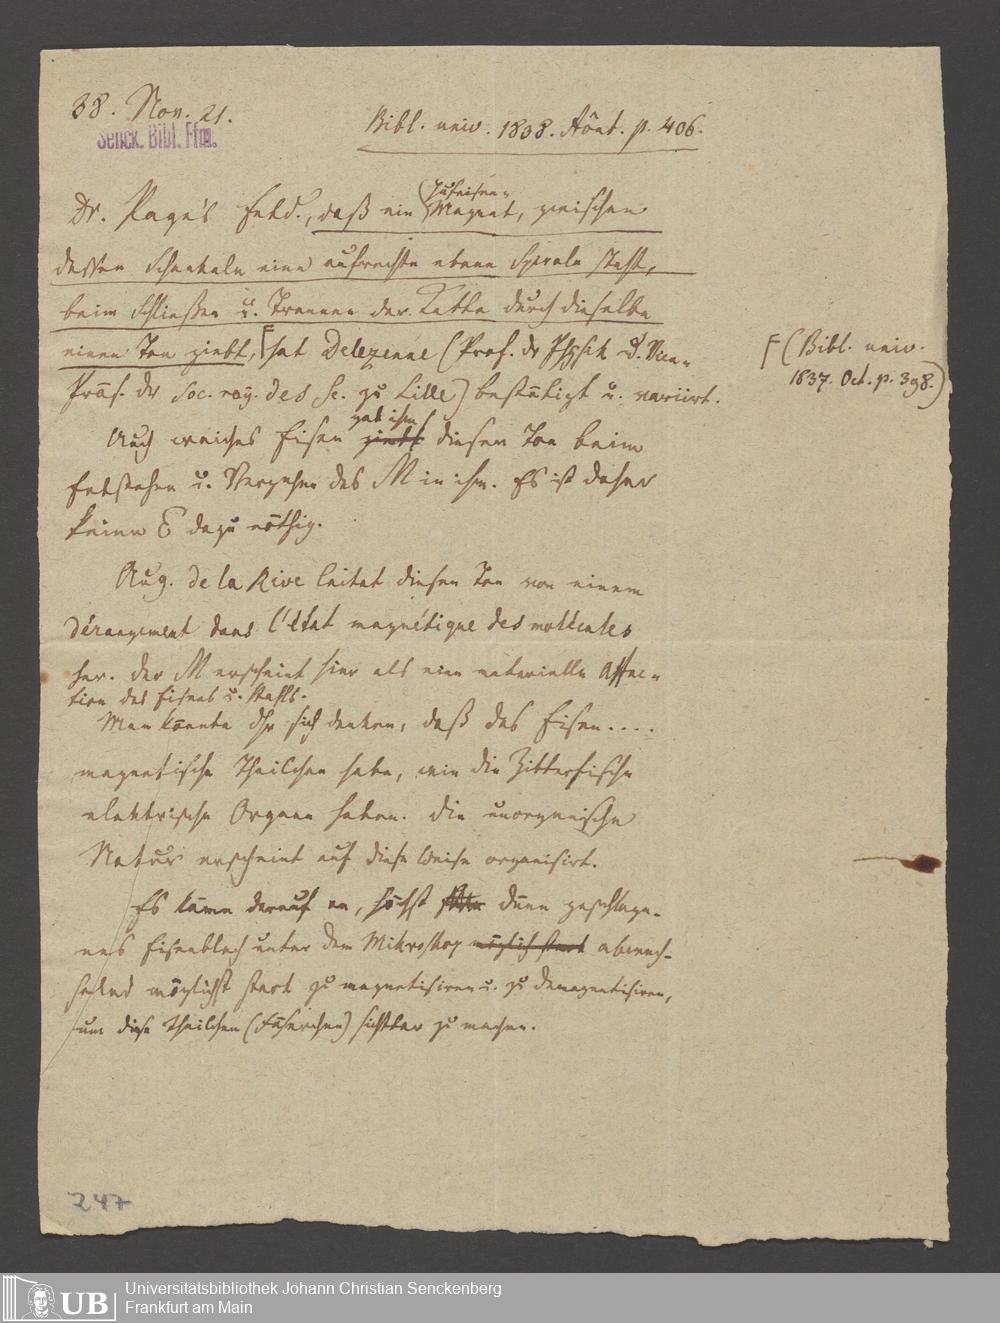 38. Nov. 21.
Senck. Bibl. Ffm.
Bibl. univ. 1838. Août. p. 406.
Dr. Page's Entd., daß ein Hufeisen-
Magnet, zwischen
dessen Schenkeln eine aufrechte ebene Spirale steht,
beim Schließen u. Trennen der Kette durch dieselbe
einen Ton giebt, hat Delezenne (Prof. der Physik u. Vice-
Präs. der Soc. roy. des Sc. zu Lille) bestätigt u. variirt.
(Bibl. univ.
1837. Oct. p. 398.)
Auch weiches Eisen giebt gab ihm diesen Ton beim
Entstehen u. Vergehen des M in ihm. Es ist daher
keine E dazu nöthig.
Aug. de la Rive leitet diesen Ton von einem
dérangement dans l'état magnétique des molécules
her. Der M erscheint hier als eine materielle Affec-
tion des Eisens u. Stahls.
Man könnte sich denken, daß das Eisen....
magnetische Theilchen habe, wie die Zitterfische
elektrische Organe haben. Die unorganische
Natur erscheint auf diese Weise organisirt.
Es käme darauf an, höchst dünn geschlage-
nes Eisenblech unter dem Mikroskop möglichst stark abwech-
selnd möglichst stark zu magnetisiren u. zu demagnetisiren,
um diese Theilchen (Fäserchen) sichtbar zu machen.
247
UB
Universitätsbibliothek Johann Christian Senckenberg
Frankfurt am Main